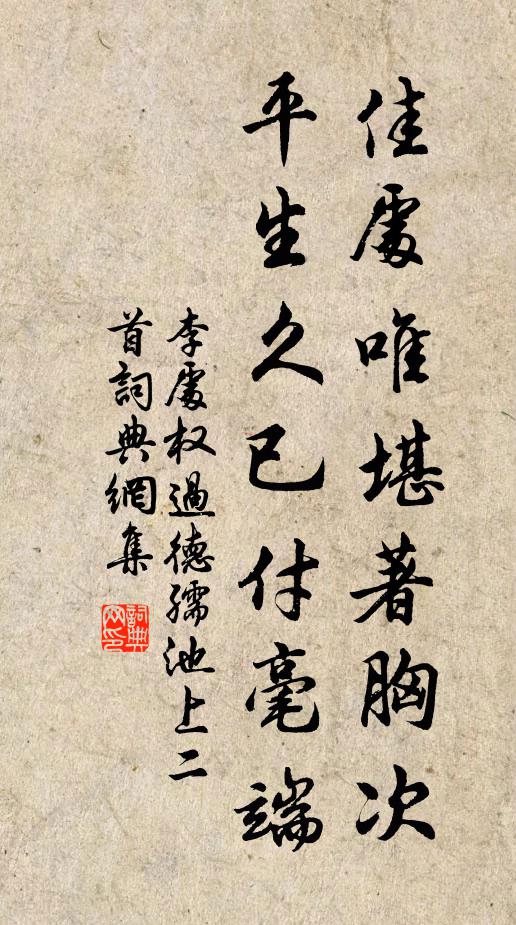 佳處唯堪著胸次
平生久已付毫端
李處权過德孺池上二
首詞典網集
詞典网印